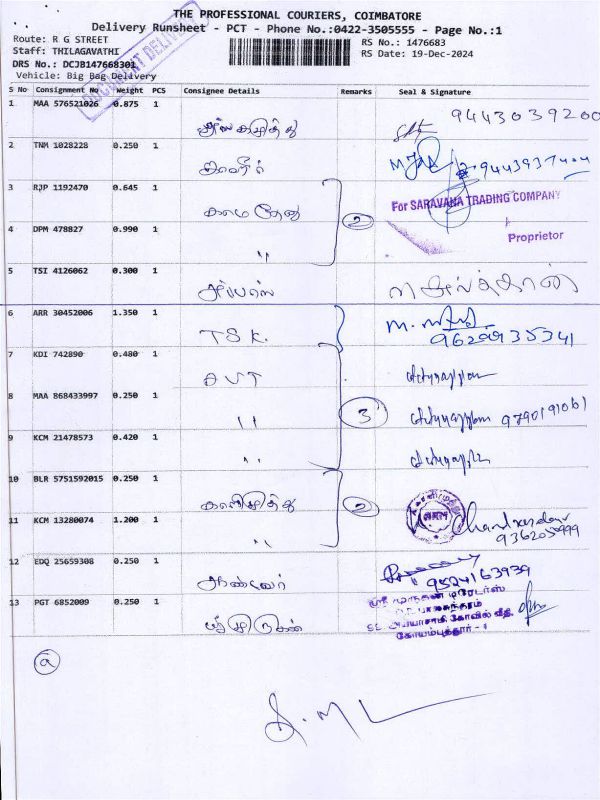 THE PROFESSIONAL COURIERS, COIMBATORE
Delivery Runsheet - PCT - Phone No.:0422-3505555 - Page No.:1
Route: R G STREET
Staff: THILAGAVATHI
DRS No.: DCJB147668301
Vehicle: Big Bag Delivery
RS No.: 1476683
RS Date: 19-Dec-2024
S No Consignment No Weight PCS Consignee Details Remarks Seal & Signature
1 MAA 576521026 0.875 1 9443039200
2 TNM 1028228 0.250 1
3 RJP 1192470 0.645 1 காமதேனு
2 For SARAVANA TRADING COMPANY
4 DPM 478827 0.990 1 "
Proprietor
5 TSI 4126062 0.300 1
6 ARR 30452006 1.350 1 T S K.
9629935341
7 KDI 742890 0.480 1
8 MAA 868433997 0.250 1 " 3 9790191061
9 KCM 21478573 0.420 1 "
10 BLR 5751592015 0.250 1 காளிமுத்து 2
11 KCM 13280074 1.200 1 "
9362050999
12 EDQ 25659308 0.250 1 ஆண்டவர் 9524163939
13 PGT 6852009 0.250 1 ஸ்ரீமுருகன்
ஸ்ரீ முருகன் டிரேடர்ஸ்
கோயம்புத்தூர் - 1